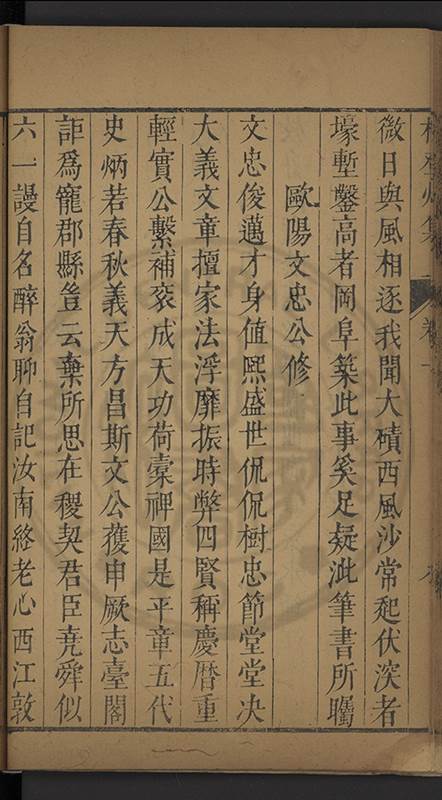 微日與風相逐我聞大磧西風沙常起伏深者
壕塹鑿高者岡阜築此事奚足疑泚筆書所矚
歐陽文忠公修
文忠俊邁才身值熙盛世侃侃樹忠節堂堂决
大義文章擅家法浮靡振時弊四賢稱慶曆重
輕實公繫補袞成天功荷橐裨國是平章五代
史炳若春秋義天方昌斯文公獲申厥志臺閣
詎爲寵郡縣豈云棄所思在稷契君臣堯舜似
六一謾自名醉翁聊自記汝南終老心西江敦